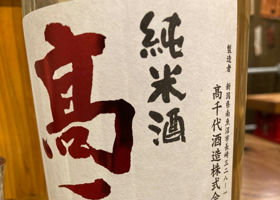 製造者
新潟県南魚沼市長崎三二八-一
高千代酒造株式会
純米酒
髙